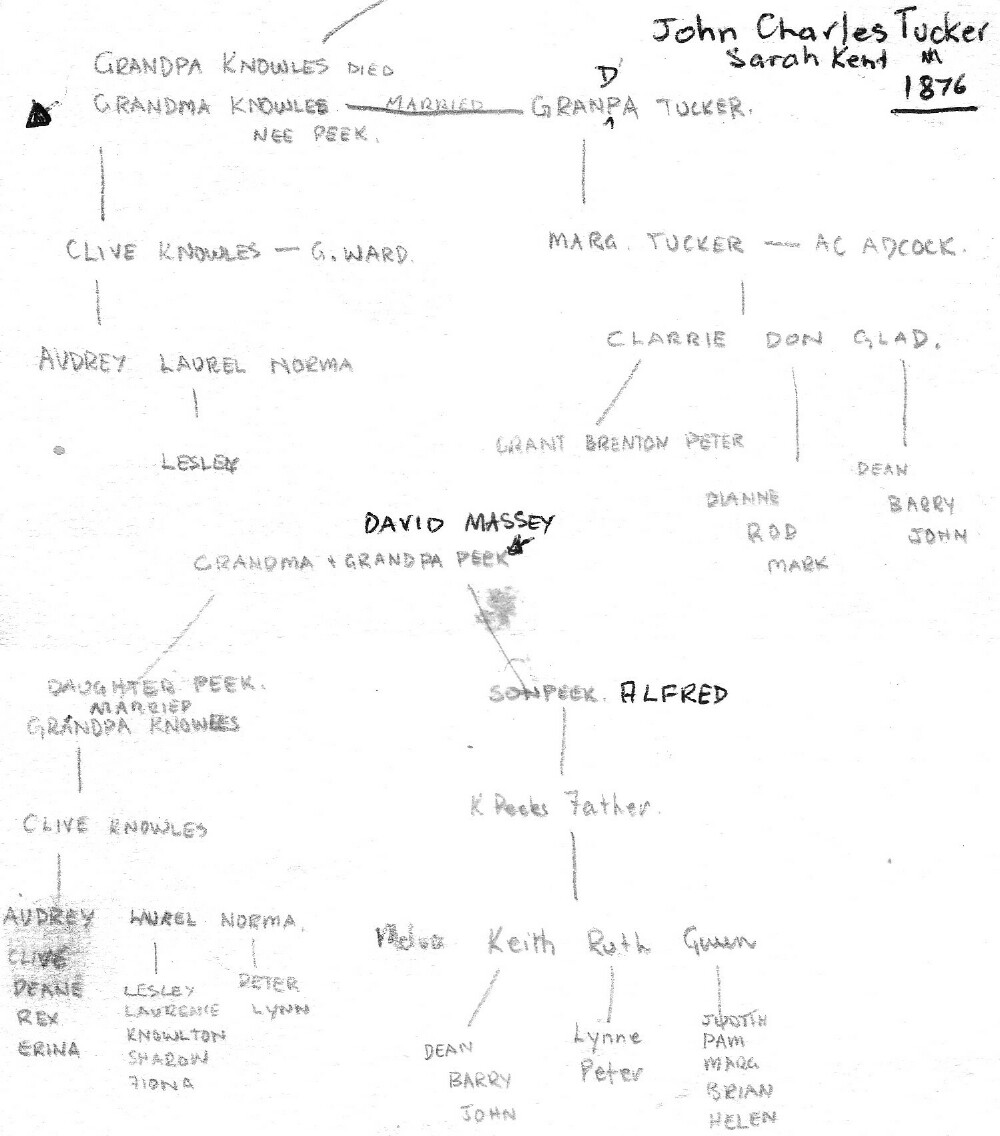 John Charles Tucker
Sarah Kent M
1876
GRANDPA KNOWLES DIED
GRANDMA KNOWLES MARRIED GRANPA TUCKER.
D
NEE PEEK.
CLIVE KNOWLES — G. WARD.
MARG. TUCKER — AC ADCOCK.
CLARRIE DON GLAD.
AUDREY LAUREL NORMA
GRANT BRENTON PETER
LESLEY
DEAN
BARRY
JOHN
DIANNE
ROD
MARK
DAVID MASSEY
GRANDMA + GRANDPA PEEK
DAUGHTER PEEK.
MARRIED
GRANDPA KNOWLES
SON PEEK. ALFRED
K Peeks Father.
CLIVE KNOWLES
AUDREY LAUREL NORMA.
CLIVE
DEANE
REX
ERINA
LESLEY
LAURENCE
KNOWLTON
SHARON
FIONA
PETER
LYNN
Keith Ruth Gwen
DEAN
BARRY
JOHN
Lynne
Peter
JUDITH
PAM
MARG
BRIAN
HELEN